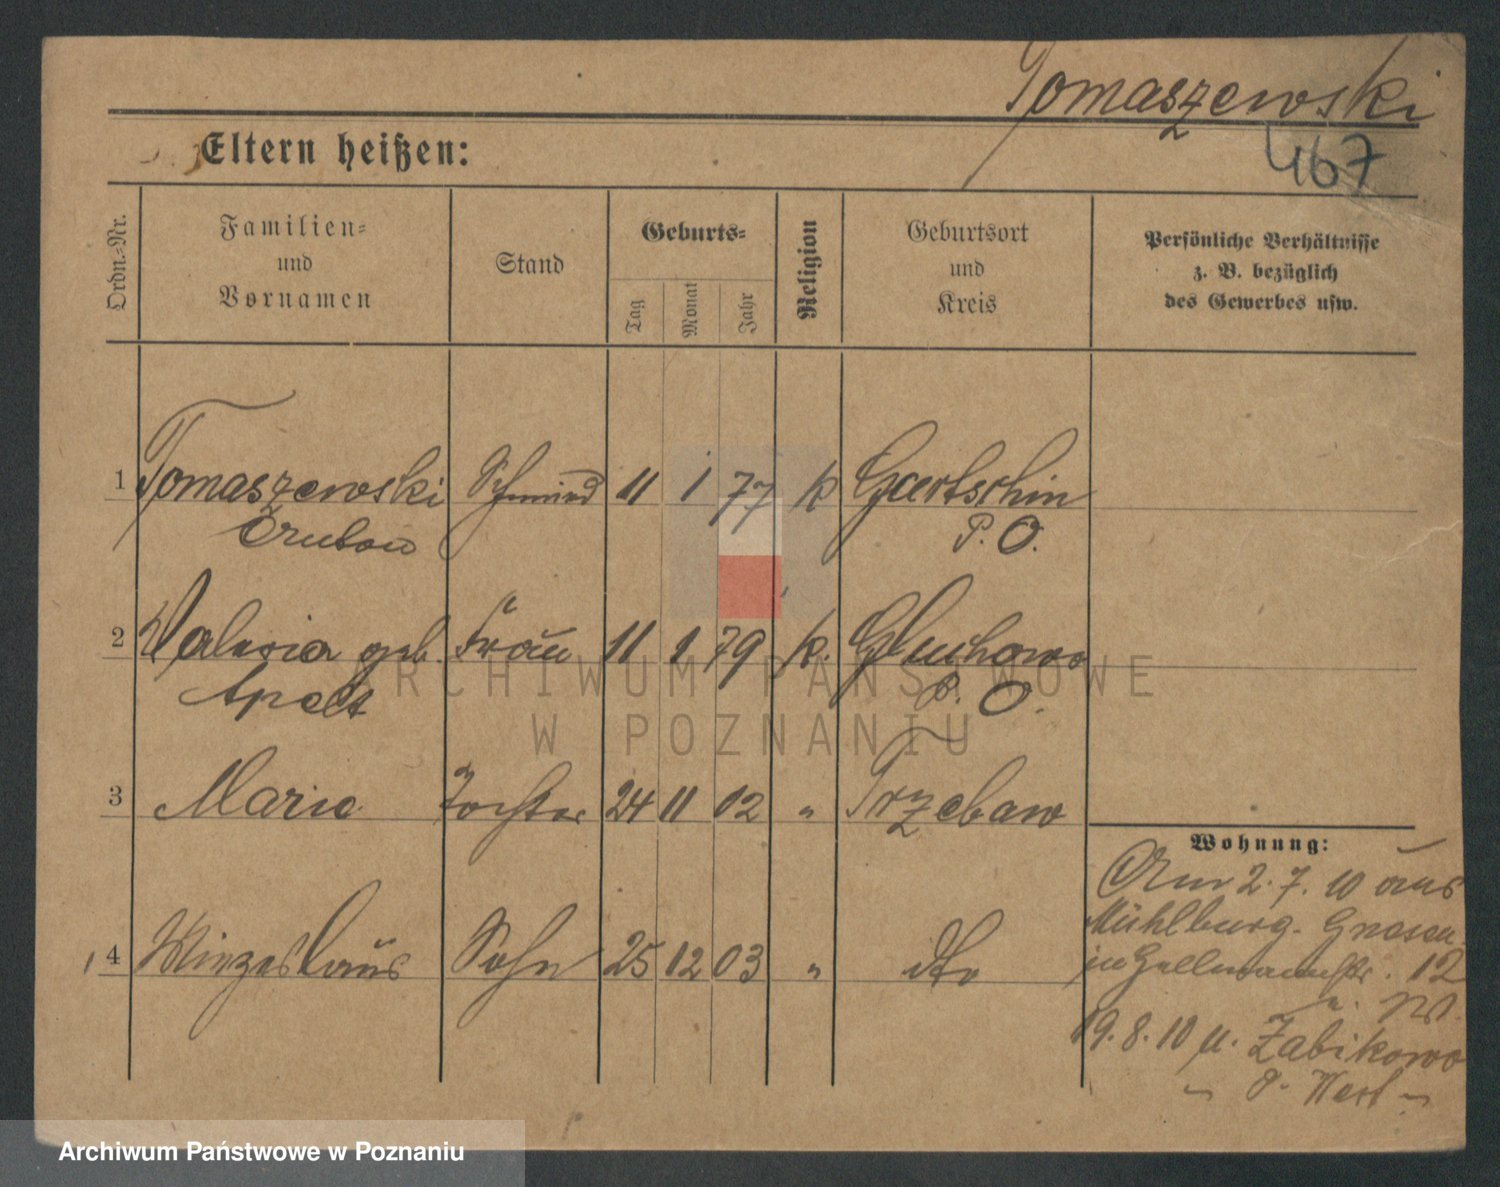 Tomaszewski
467
Eltern heißen:
Ordn.-Nr.
Familien-
und
Vornamen
Stand
Geburts-
Tag
Monat
Jahr
Religion
Geburtsort
und
Kreis
Persönliche Verhältnisse
z. B. bezüglich
des Gewerbes usw.
1 Tomaszewski Schmied 11 1 77 k Gortschin
P. O.
2 Valeria geb. Frau 11 1 79 k. Gluchowo
Apolt P. O.
3 Marie Tochter 24 11 02 " Trzebaw
4 Sohn 25 12 03 " dto
Wohnung:
Am 2. 7. 10 aus
Mühlburg. Gnesen
in 12
19. 8. 10 n. Zabikowo
P. West
ARCHIWUM PAŃSTWOWE
W POZNANIU
Archiwum Państwowe w Poznaniu